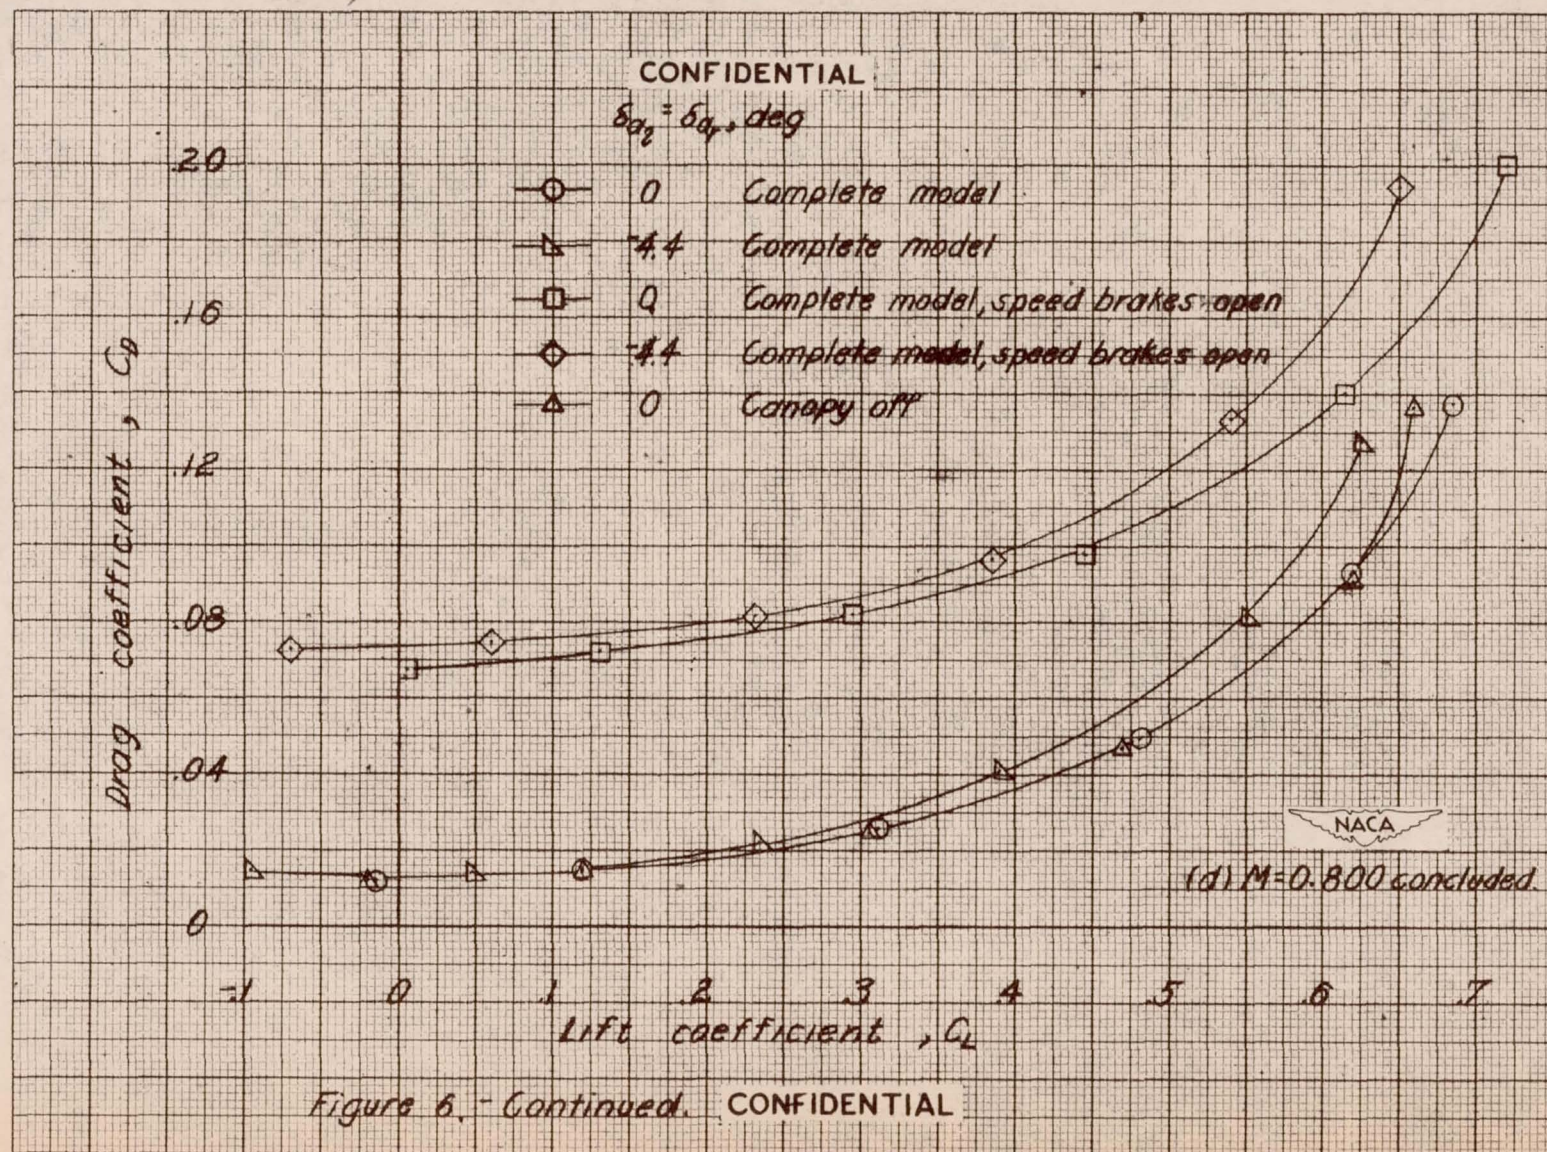 CONFIDENTIAL
δaₗ = δaᵣ, deg
0 Complete model
-4.4 Complete model
0 Complete model, speed brakes open
-4.4 Complete model, speed brakes open
0 Canopy off
.20
.16
.12
.08
.04
0
Drag coefficient, C_D
-.1 0 .1 .2 .3 .4 .5 .6 .7
Lift coefficient, C_L
NACA
(d) M=0.800 concluded.
Figure 6.- Continued.
CONFIDENTIAL